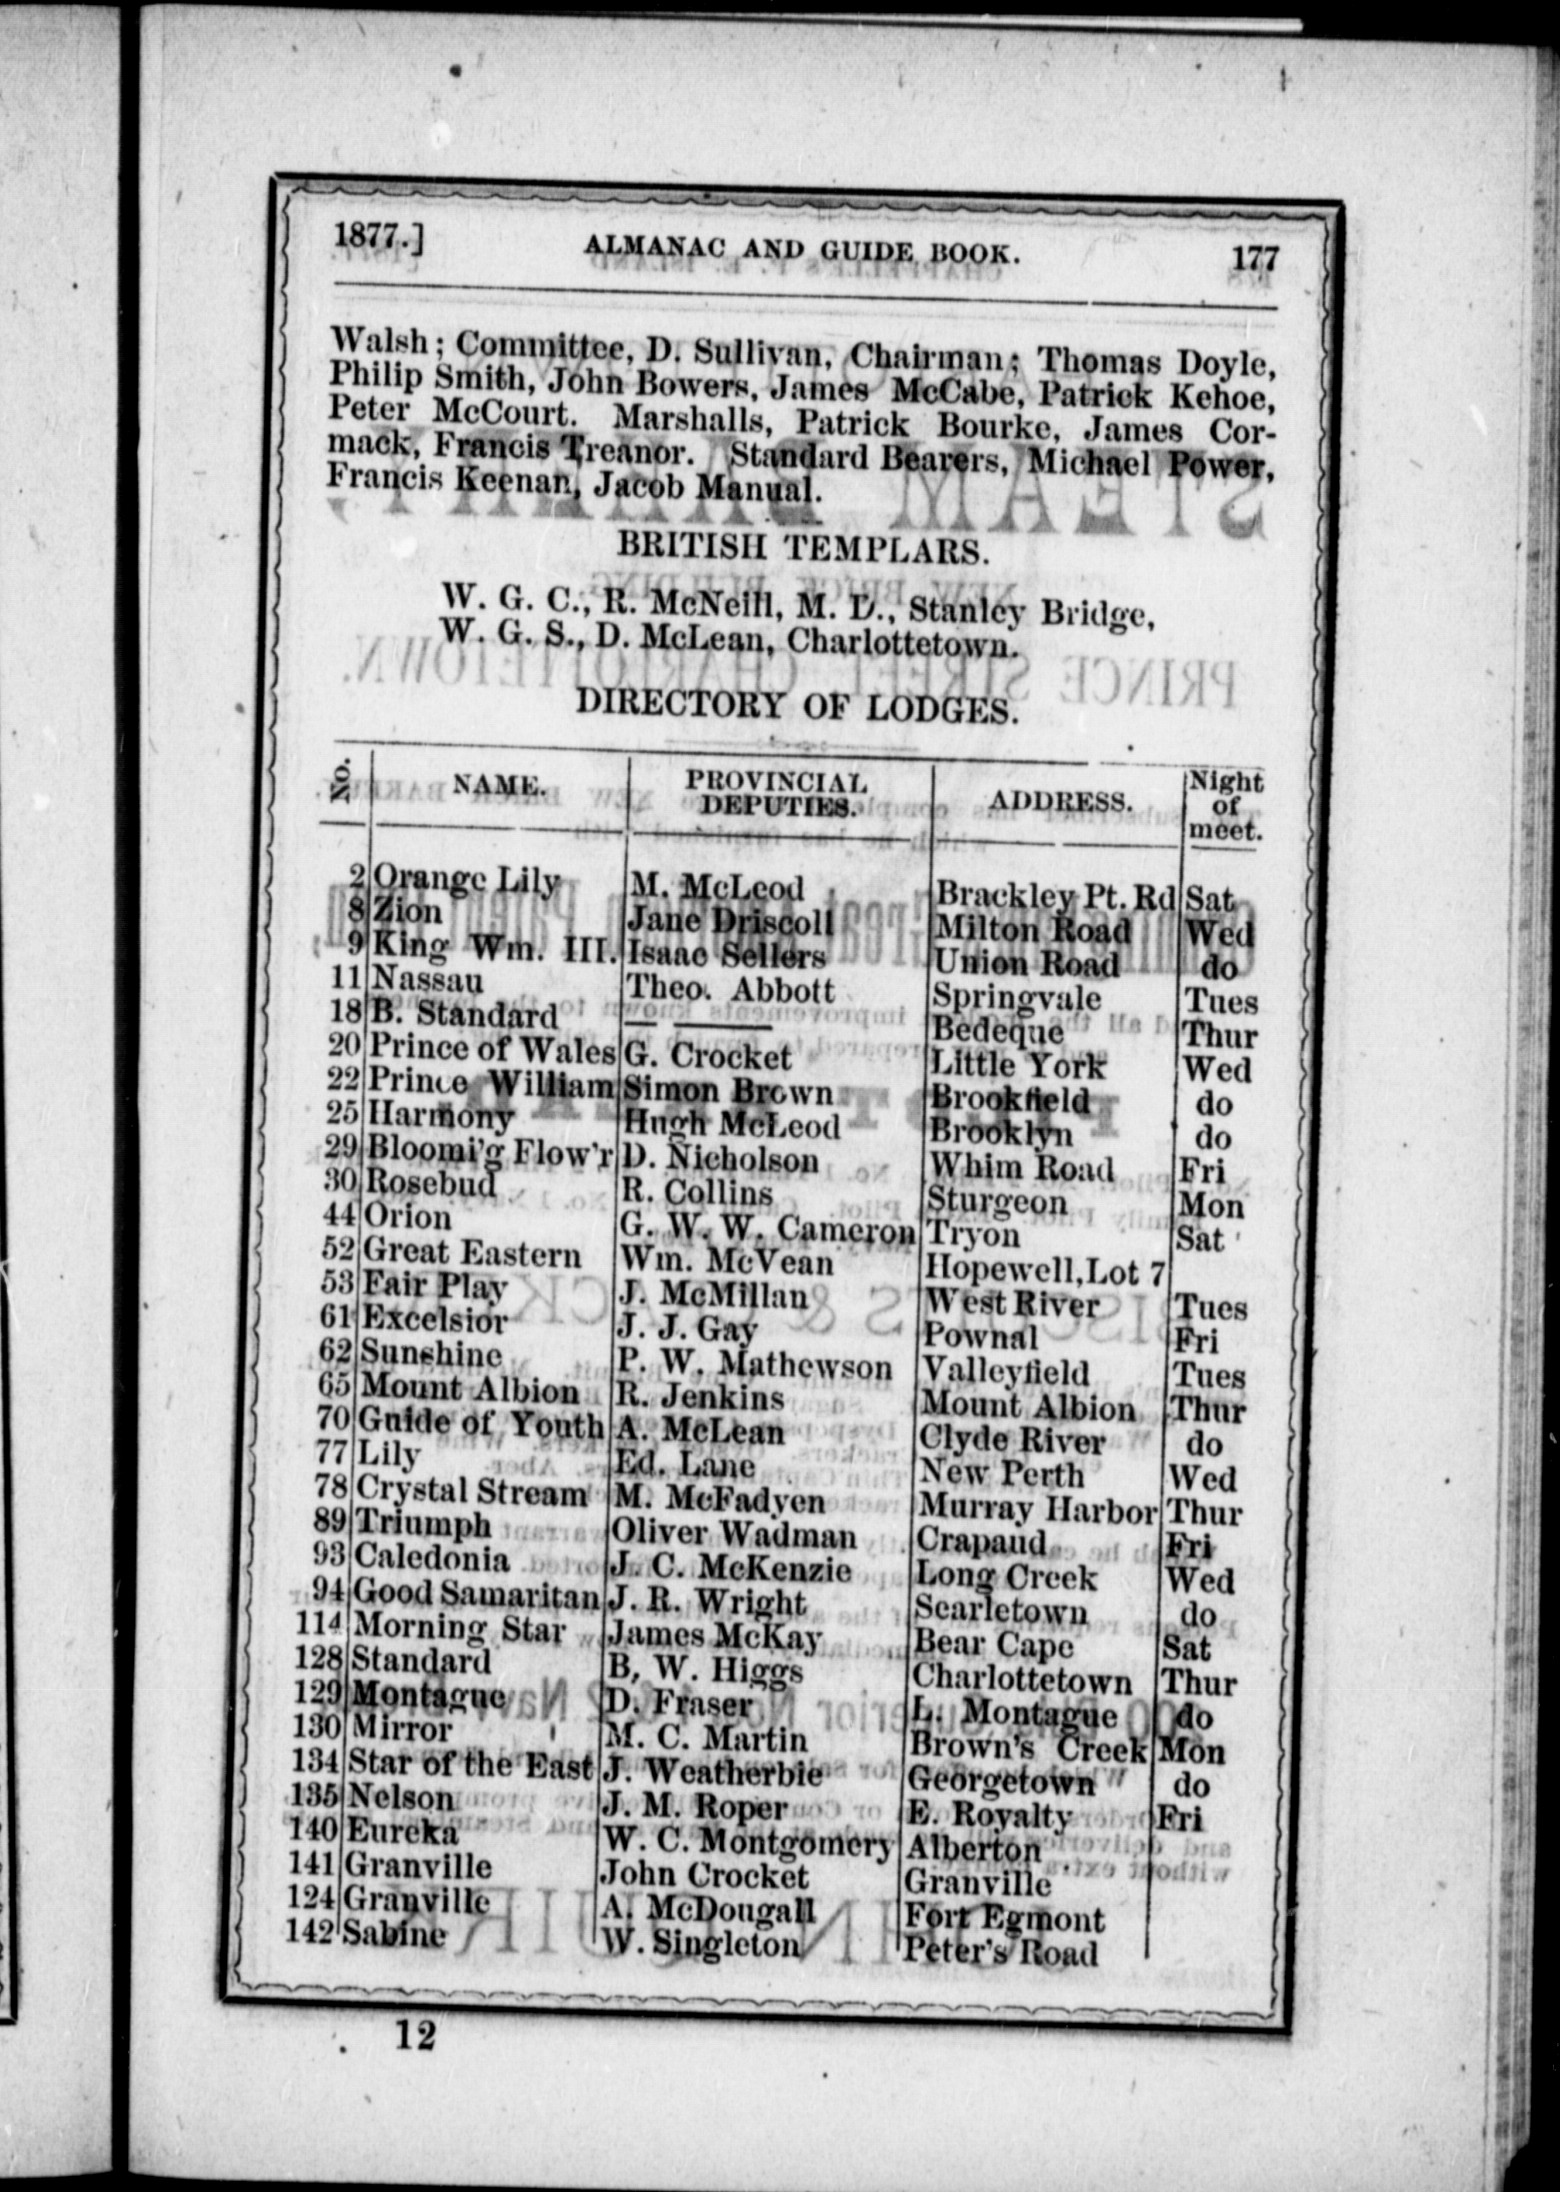 1877.] ALMANAC AND GUIDE BOOK. 177
Walsh; Committee, D. Sullivan, Chairman; Thomas Doyle,
Philip Smith, John Bowers, James McCabe, Patrick Kehoe,
Peter McCourt. Marshalls, Patrick Bourke, James Cor-
mack, Francis Treanor. Standard Bearers, Michael Power,
Francis Keenan, Jacob Manual.
BRITISH TEMPLARS.
W. G. C., R. McNeill, M. D., Stanley Bridge,
W. G. S., D. McLean, Charlottetown.
DIRECTORY OF LODGES.
No. NAME. PROVINCIAL DEPUTIES. ADDRESS. Night of meet.
2 Orange Lily M. McLeod Brackley Pt. Rd Sat
8 Zion Jane Driscoll Milton Road Wed
9 King Wm. III. Isaac Sellers Union Road do
11 Nassau Theo. Abbott Springvale Tues
18 B. Standard — —— Bedeque Thur
20 Prince of Wales G. Crocket Little York Wed
22 Prince William Simon Brown Brookfield do
25 Harmony Hugh McLeod Brooklyn do
29 Bloomi'g Flow'r D. Nicholson Whim Road Fri
30 Rosebud R. Collins Sturgeon Mon
44 Orion G. W. W. Cameron Tryon Sat
52 Great Eastern Wm. McVean Hopewell,Lot 7
53 Fair Play J. McMillan West River Tues
61 Excelsior J. J. Gay Pownal Fri
62 Sunshine P. W. Mathewson Valleyfield Tues
65 Mount Albion R. Jenkins Mount Albion Thur
70 Guide of Youth A. McLean Clyde River do
77 Lily Ed. Lane New Perth Wed
78 Crystal Stream M. McFadyen Murray Harbor Thur
89 Triumph Oliver Wadman Crapaud Fri
93 Caledonia J. C. McKenzie Long Creek Wed
94 Good Samaritan J. R. Wright Searletown do
114 Morning Star James McKay Bear Cape Sat
128 Standard B, W. Higgs Charlottetown Thur
129 Montague D. Fraser L. Montague do
130 Mirror M. C. Martin Brown's Creek Mon
134 Star of the East J. Weatherbie Georgetown do
135 Nelson J. M. Roper E. Royalty Fri
140 Eureka W. C. Montgomery Alberton
141 Granville John Crocket Granville
124 Granville A. McDougall Fort Egmont
142 Sabine W. Singleton Peter's Road
12